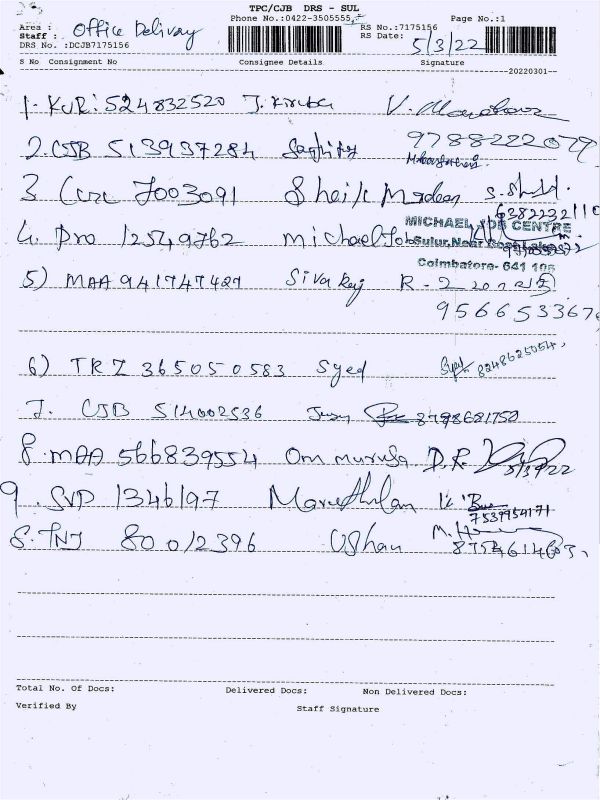 TPC/CJB DRS - SUL
Phone No.:0422-3505555, Page No.:1
Area : Office Delivary RS No.:7175156
Staff : RS Date: 5/3/22
DRS No. :DCJB7175156
S No Consignment No Consignee Details Signature
20220301
1. KUR: 524832520 J. Kiruba V.
9788222079
2. CJB 513937284
3 7003091 Sheik S.
6382232110
4. Pro 12549762 Michael Job
MICHAEL JOB CENTRE
Sulur, Near
Coimbatore- 641 105
5) MAA 941747427 Siva Raj R -
9566533670
6) TRZ 365050583 Syed Syed 8248625054,
7. CJB 514002536 8798681750
8. MAA 566839554 Om Muruga D.R. 5/3/22
9. SVP 1346197 K.
7539954171
8. TNJ 80012396 Ushau M.
8754614603,
Total No. Of Docs: Delivered Docs: Non Delivered Docs:
Verified By Staff Signature